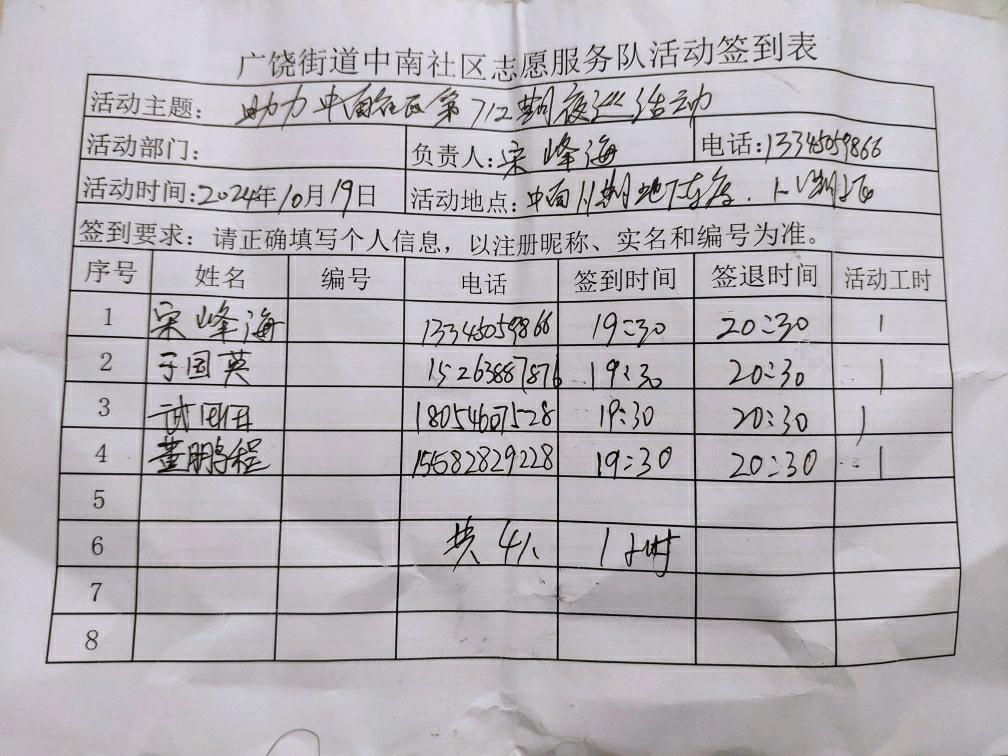 广饶街道中南社区志愿服务队活动签到表
活动主题: 助力中南社区第712期夜巡活动
活动部门: 负责人: 宋峰海 电话: 13345059866
活动时间: 2024年10月19日 活动地点: 中南 期地下车库.
签到要求: 请正确填写个人信息, 以注册昵称、实名和编号为准。
序号 姓名 编号 电话 签到时间 签退时间 活动工时
1 宋峰海 13345059866 19:30 20:30 1
2 于国英 15263887876 19:30 20:30 1
3 18054607528 19:30 20:30 1
4 董鹏程 15582829228 19:30 20:30 1
5
6 共4人 1小时
7
8